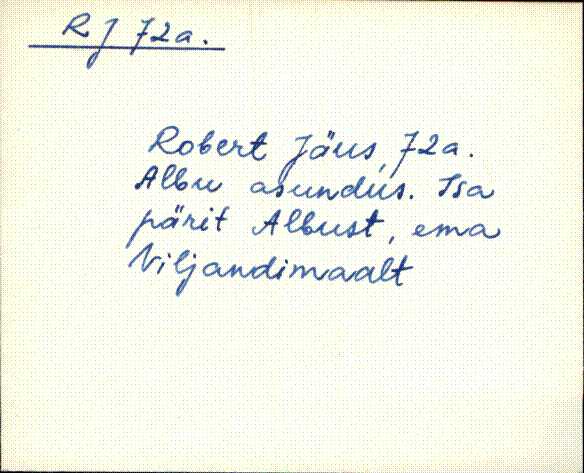 R J 72a.
Robert Jäus, 72a.
Albu asundus. Isa
pärit Albust, ema
Viljandimaalt